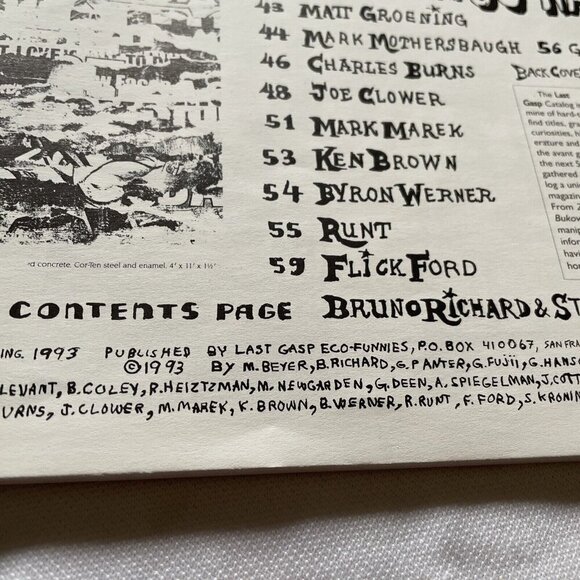 43 MATT GROENING
44 MARK MOTHERSBAUGH 56 G
46 CHARLES BURNS BACK COVE
48 JOE CLOWER
51 MARK MAREK
53 KEN BROWN
54 BYRON WERNER
55 RUNT
59 FLICK FORD
The Last
Gasp Catalog
mine of hard-
find titles, gra
curiosities,
erature and
the avant g
the next 5
gathered
log a uni
magazin
From
Bukow
manip
infor
havi
ho
d concrete. Cor-Ten steel and enamel. 4" x 11" x 1½"
CONTENTS PAGE BRUNO RICHARD & ST
ING. 1993 PUBLISHED BY LAST GASP ECO-FUNNIES, P.O. BOX 410067, SAN FRA
©1993 BY M. BEYER, B. RICHARD, G. PANTER, G. FUJII, G. HANS
LEVANT, B. COLEY, R. HEIZTZMAN, M. NEWGARDEN, G. DEEN, A. SPIEGELMAN, J. COTT
URNS, J. CLOWER, M. MAREK, K. BROWN, B. WERNER, R. RUNT, F. FORD, S. KRONIN